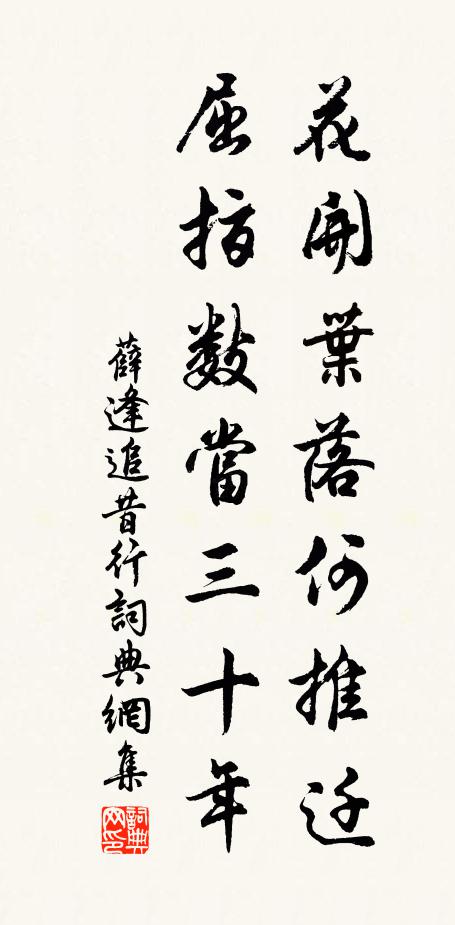 花開葉落何推迁
屈指數當三十年
薛逢追昔行詞典網集
詞典网印